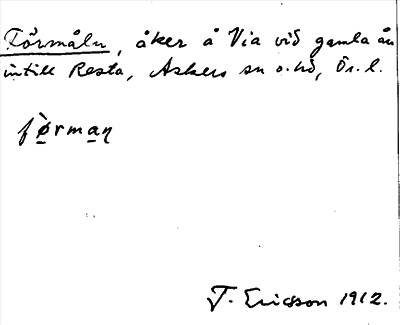 Förmåln, åker å Via vid gamla ån
intill Resta, Askers sn o. hd, Ör. l.
fø̀rmaɳ
T. Ericsson 1912.